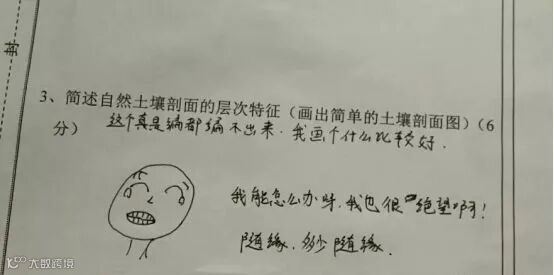 封
3、简述自然土壤剖面的层次特征（画出简单的土壤剖面图）（6
分）
这个真是编都编不出来．我画个什么比较好．
我能怎么办呀，我也很绝望啊！
随缘．分随缘．
大数跨境